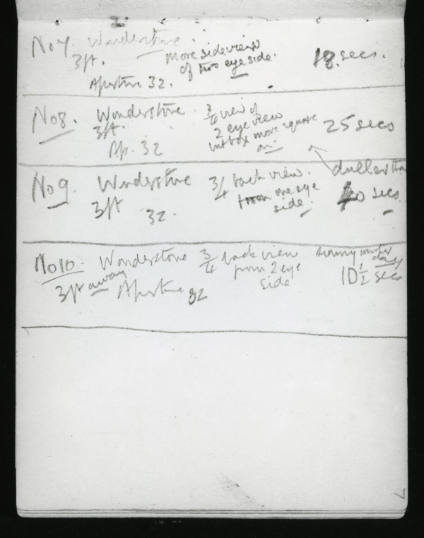 No 7. Wonderstone.
more side view
3ft. of two eye side. 18. secs.
Aperture 32.
No 8. Wonderstone 3/4 view of
3ft. 2 eye view 25 secs
Ap. 32 but box more square
on.
duller than
No 9 Wonderstone 3/4 back view.
3ft from one eye 40 secs
32. side.
No 10. Wonderstone 3/4 back view sunny
3ft away from 2 eye 10 1/2 secs
Aperture 32 side